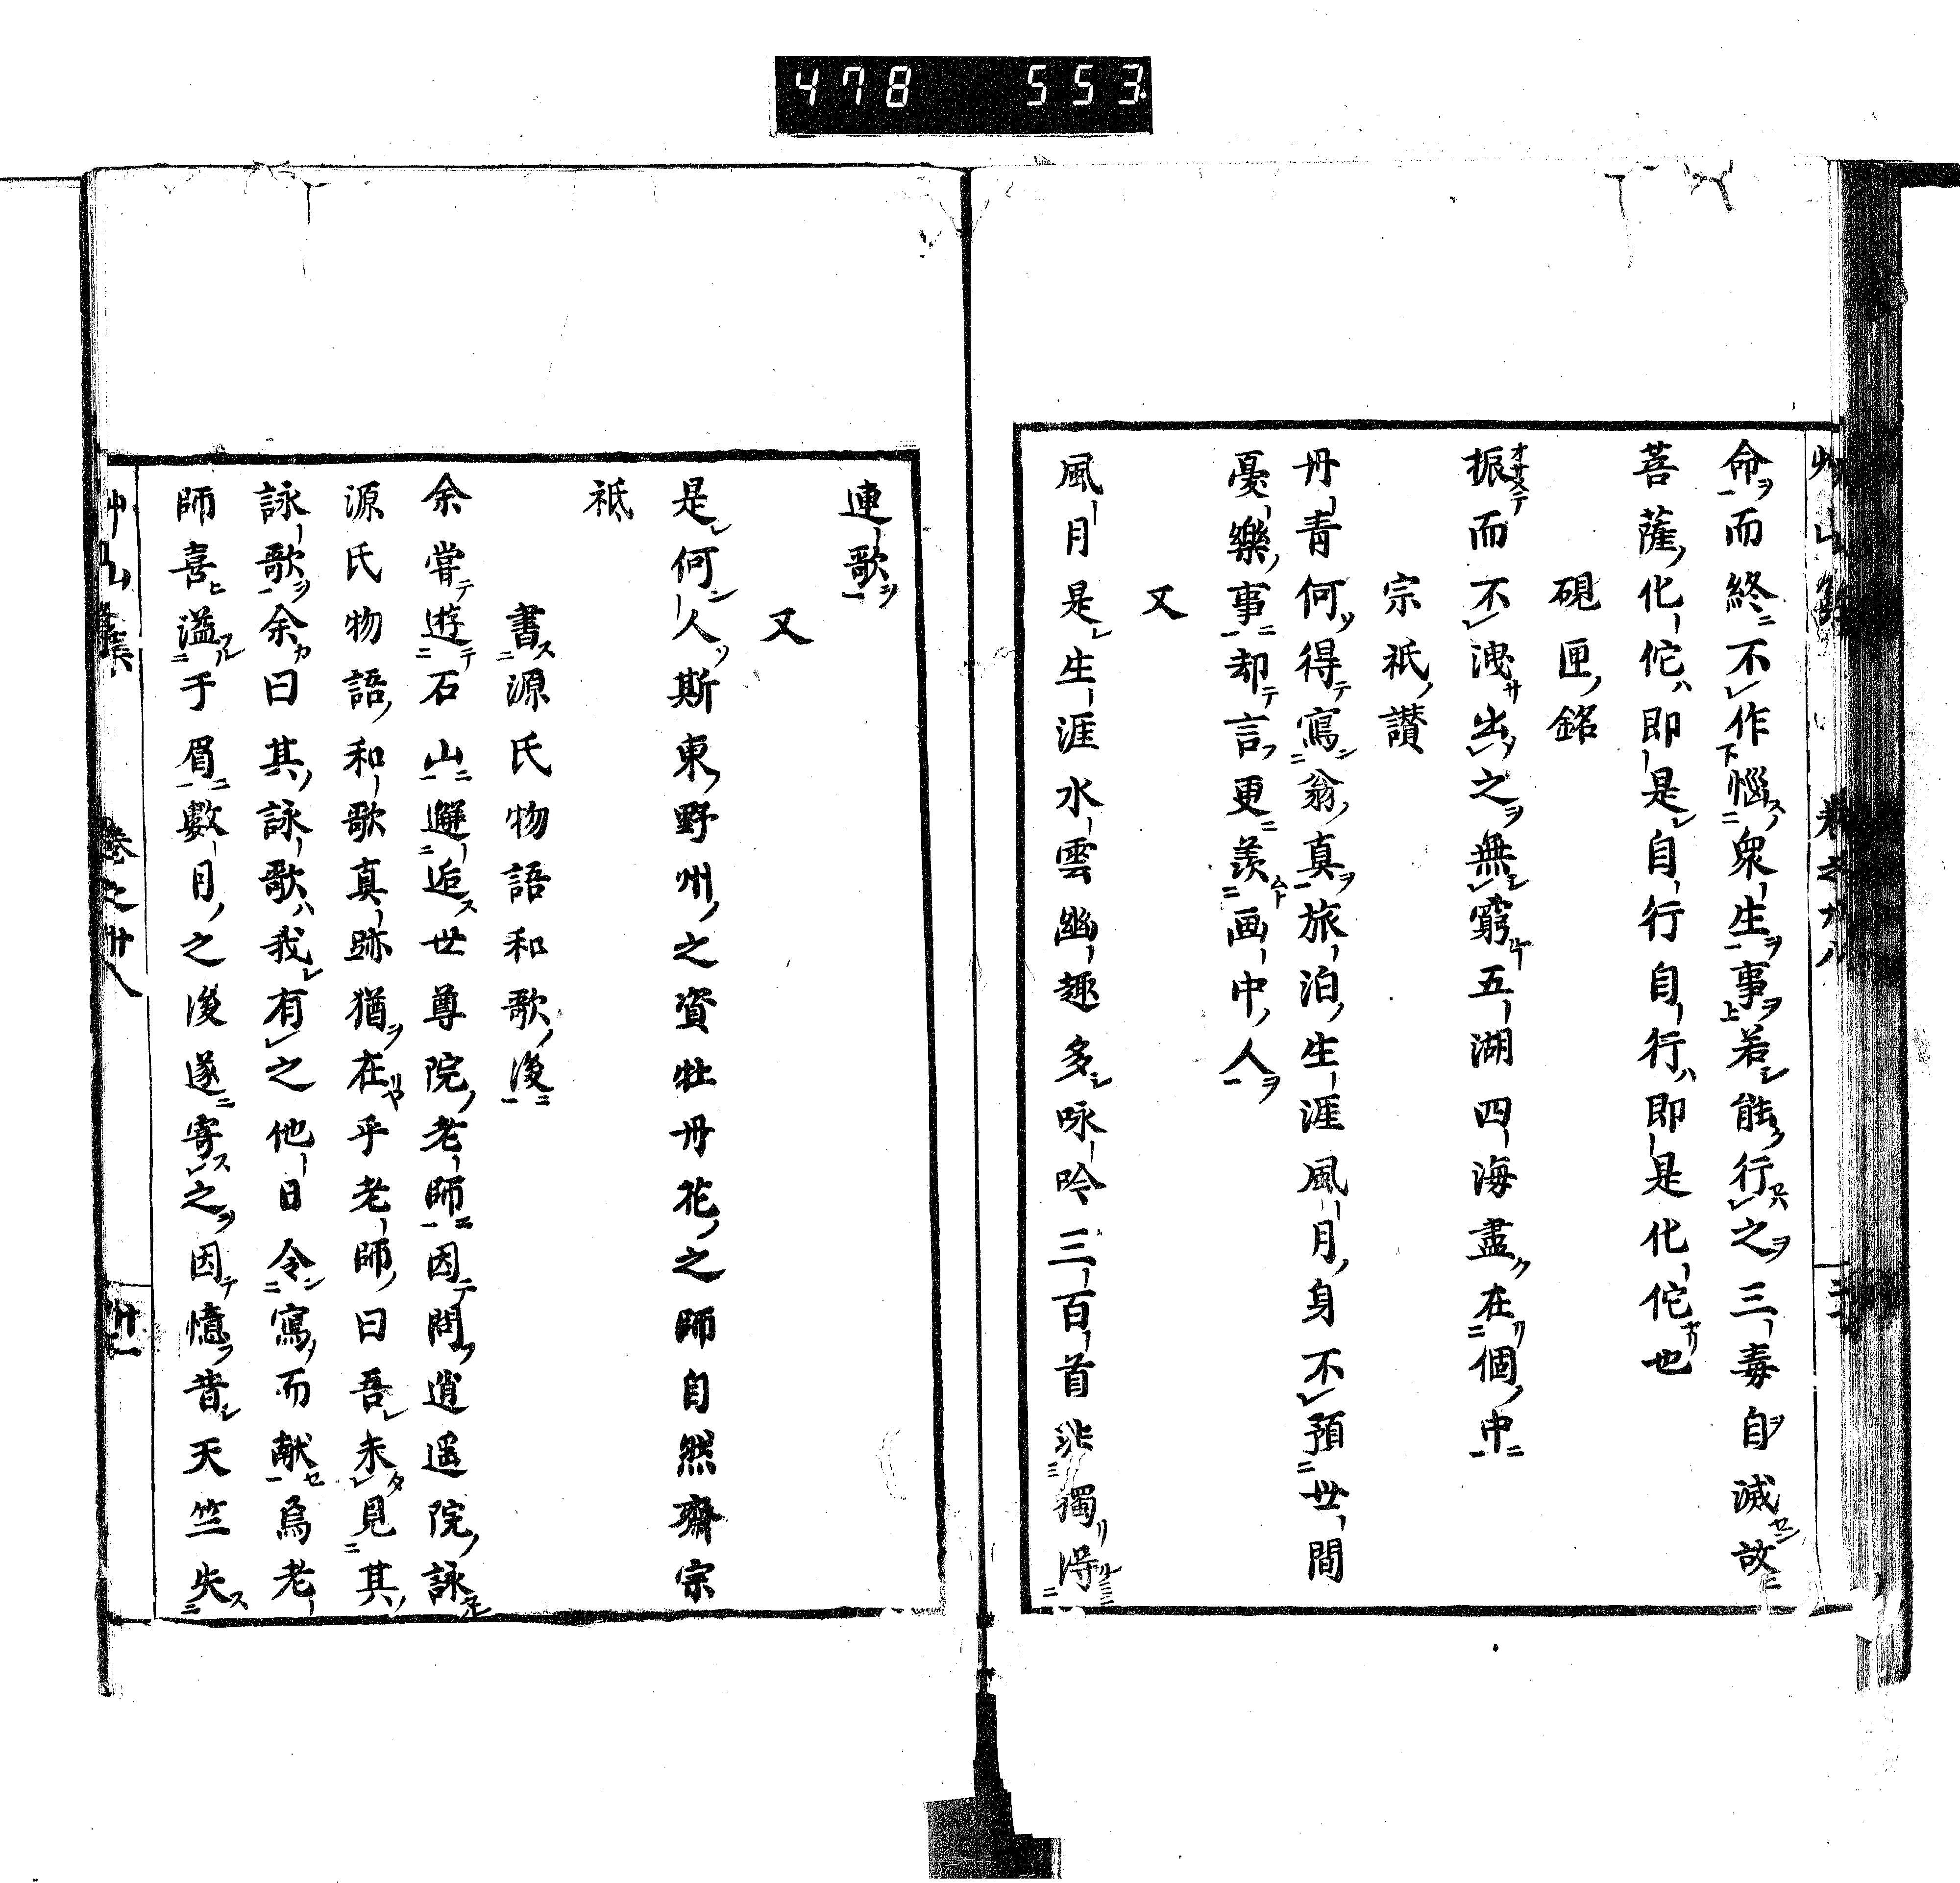 478 553
命而終不作惱衆生事若能行之三毒自滅故
菩薩化佗即是自行自行即是化佗也
硯匣銘
振而不洩出之無窮五湖四海盡在個中
宗祇讃
丹青何得寫翁真旅泊生涯風月身不預世間
憂樂事却言更羨画中人
又
風月是生涯水雲幽趣多咏吟三百首非獨得
連歌
又
是何人斯東野州之資牡丹花之師自然齋宗
祇
書源氏物語和歌後
余嘗遊石山邂逅世尊院老師因問逍遥院詠
源氏物語和歌真跡猶在乎老師曰吾未見其
詠歌余曰其詠歌我有之他日令寫而献焉老
師喜溢于眉數月之後遂寄之因憶昔天竺失
艸山集 卷之廿八 廿一